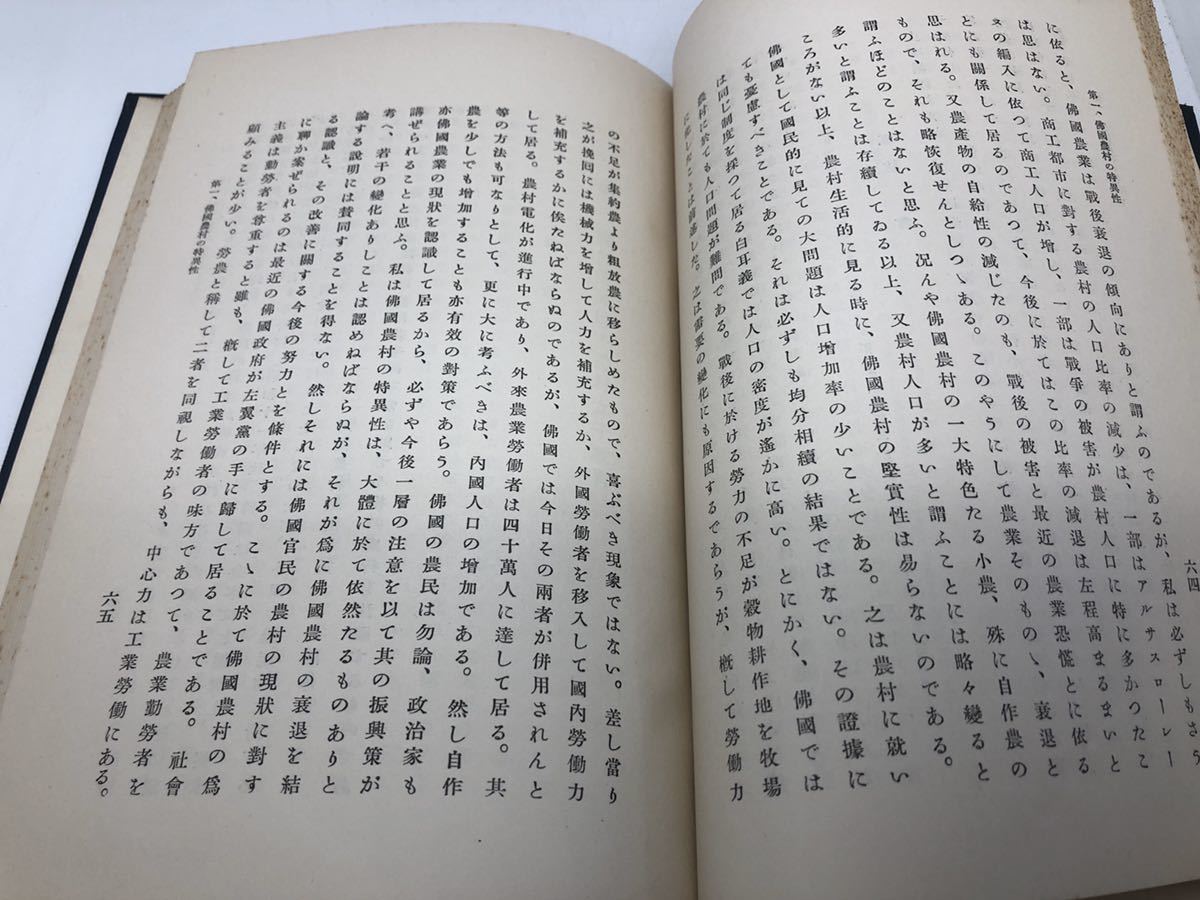 第一、佛國農村の特異性
六四
に依ると、佛國農業は戰後衰退の傾向にありと謂ふのであるが、私は必ずしもさう
は思はない。商工都市に對する農村の人口比率の減少は、一部はアルサスローレー
ヌの編入に依つて商工人口が增し、一部は戰爭の被害が農村人口に特に多かつたこ
とにも關係して居るのであつて、今後に於てはこの比率の減退は左程高まるまいと
思はれる。又農產物の自給性の減じたのも、戰後の被害と最近の農業恐慌とに依る
もので、それも略恢復せんとしつゝある。このやうにして農業そのものゝ、衰退と
謂ふほどのことはないと思ふ。況んや佛國農村の一大特色たる小農、殊に自作農の
多いと謂ふことは存續してゐる以上、又農村人口が多いと謂ふことには略々變ると
ころがない以上、農村生活的に見る時に、佛國農村の堅實性は易らないのである。
佛國として國民的に見ての大問題は人口增加率の少いことである。之は農村に就い
ても憂慮すべきことである。それは必ずしも均分相續の結果ではない。その證據に
は同じ制度を採つて居る白耳義では人口の密度が遙かに高い。とにかく、佛國では
農村に於ても人口問題が難問である。戰後に於ける勞力の不足が穀物耕作地を牧場
に化したことは前述した。之は需要の變化にも原因するであらうが、概して勞働力
の不足が集約農より粗放農に移らしめたもので、喜ぶべき現象ではない。差し當り
之が挽囘には機械力を增して人力を補充するか、外國勞働者を移入して國內勞働力
を補充するかに俟たねばならぬのであるが、佛國では今日その兩者が併用されんと
して居る。農村電化が進行中であり、外來農業勞働者は四十萬人に達して居る。其
等の方法も可なりとして、更に大に考ふべきは、內國人口の增加である。然し自作
農を少しでも增加することも亦有效の對策であらう。佛國の農民は勿論、政治家も
亦佛國農業の現狀を認識して居るから、必ずや今後一層の注意を以て其の振興策が
講ぜられることと思ふ。私は佛國農村の特異性は、大體に於て依然たるものありと
考へ、若干の變化ありしことは認めねばならぬが、それが爲に佛國農村の衰退を結
論する說明には贊同することを得ない。然しそれには佛國官民の農村の現狀に對す
る認識と、その改善に關する今後の努力とを條件とする。こゝに於て佛國農村の爲
に聊か案ぜられるのは最近の佛國政府が左翼黨の手に歸して居ることである。社會
主義は勤勞者を尊重すると雖も、概して工業勞働者の味方であつて、農業勤勞者を
顧みることが少い。勞農と稱して二者を同視しながらも、中心力は工業勞働にある。
第一、佛國農村の特異性
六五